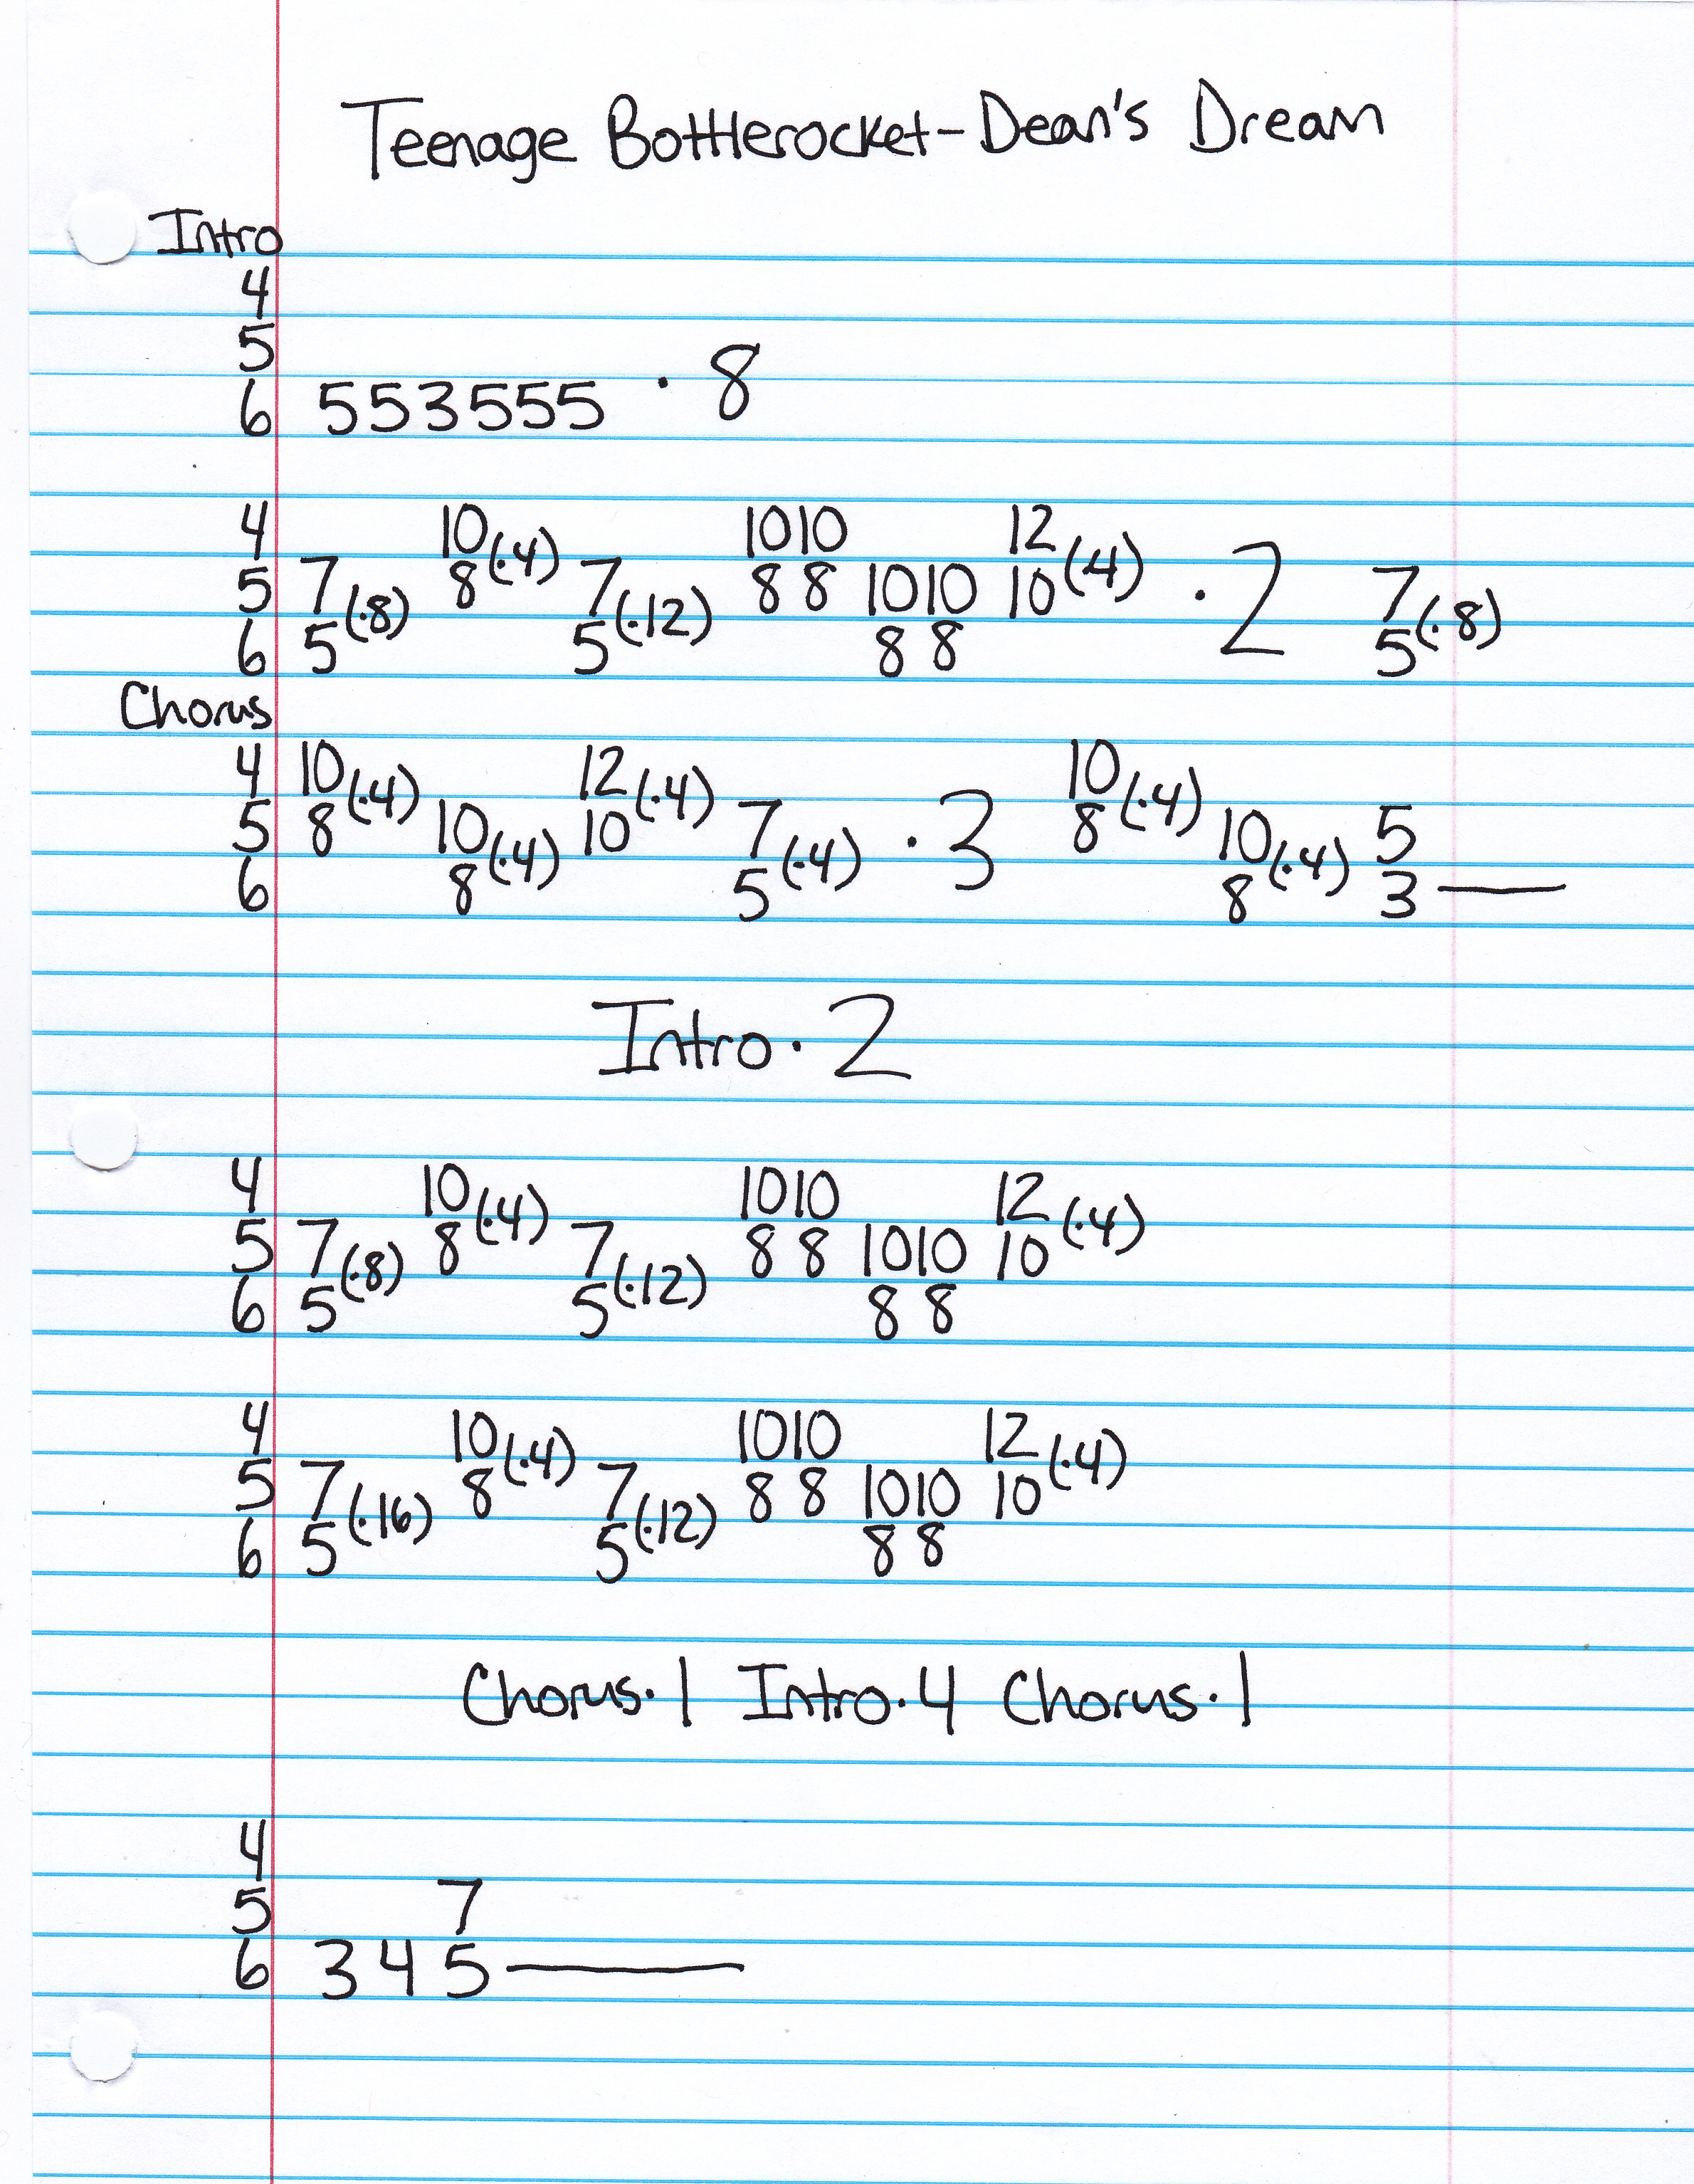 Teenage Bottlerocket-Dean's Dream
Intro
4
5
6 553555 · 8
4 10(·4) 1010 12(·4)
5 7(·8) 8 7(·12) 8 8 1010 10 · 2 7(·8)
6 5 5 8 8 5
Chorus
4 10(·4) 12(·4) 10(·4)
5 8 10(·4) 10 7(·4) · 3 8 10(·4) 5
6 8 5 8 3
Intro · 2
4 10(·4) 1010 12(·4)
5 7(·8) 8 7(·12) 8 8 1010 10
6 5 5 8 8
4 10(·4) 1010 12(·4)
5 7(·16) 8 7(·12) 8 8 1010 10
6 5 5 8 8
Chorus·1 Intro·4 Chorus·1
4
5 7
6 3 4 5